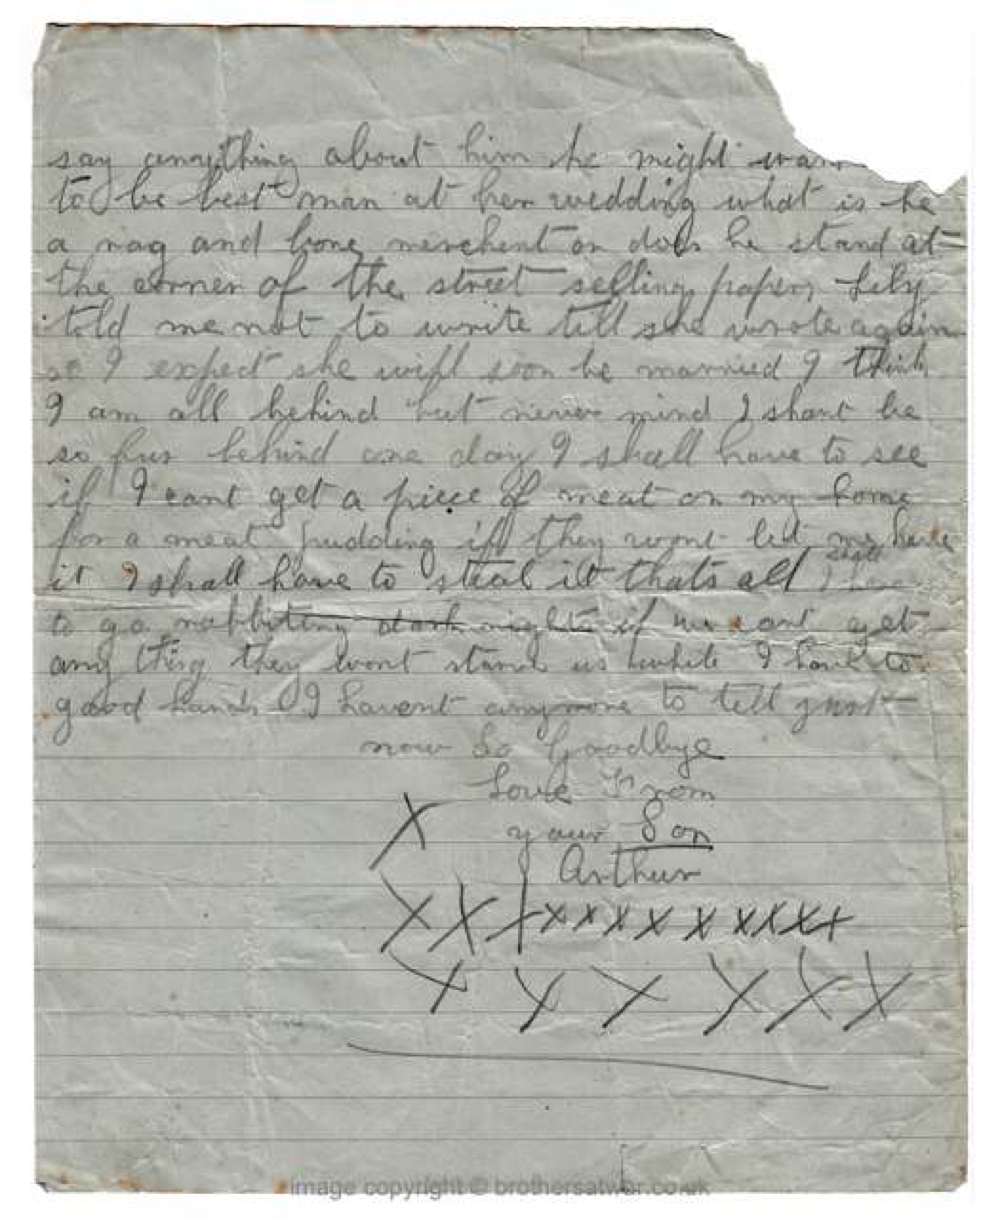 say anything about him he might wan
to be best man at her wedding what is he
a rag and bone merchent or does he stand at
the corner of the street selling papers Lily
told me not to write till she wrote again
so I expect she will soon be married I think
I am all behind but never mind I shant be
so fur behind one day I shall have to see
if I cant get a piece of meat on my
for a meat pudding if they wont let me have
it I shall have to steal it thats all I shall have
to go rabbiting dark nights if we cant get
any thing they wont starve us while I have to
good hands I havent anymore to tell just
now So Goodbye
Love From
your Son
Arthur
X
X X X x x x x x x x x x x
X X X X X X
image copyright © brothersatwar.co.uk